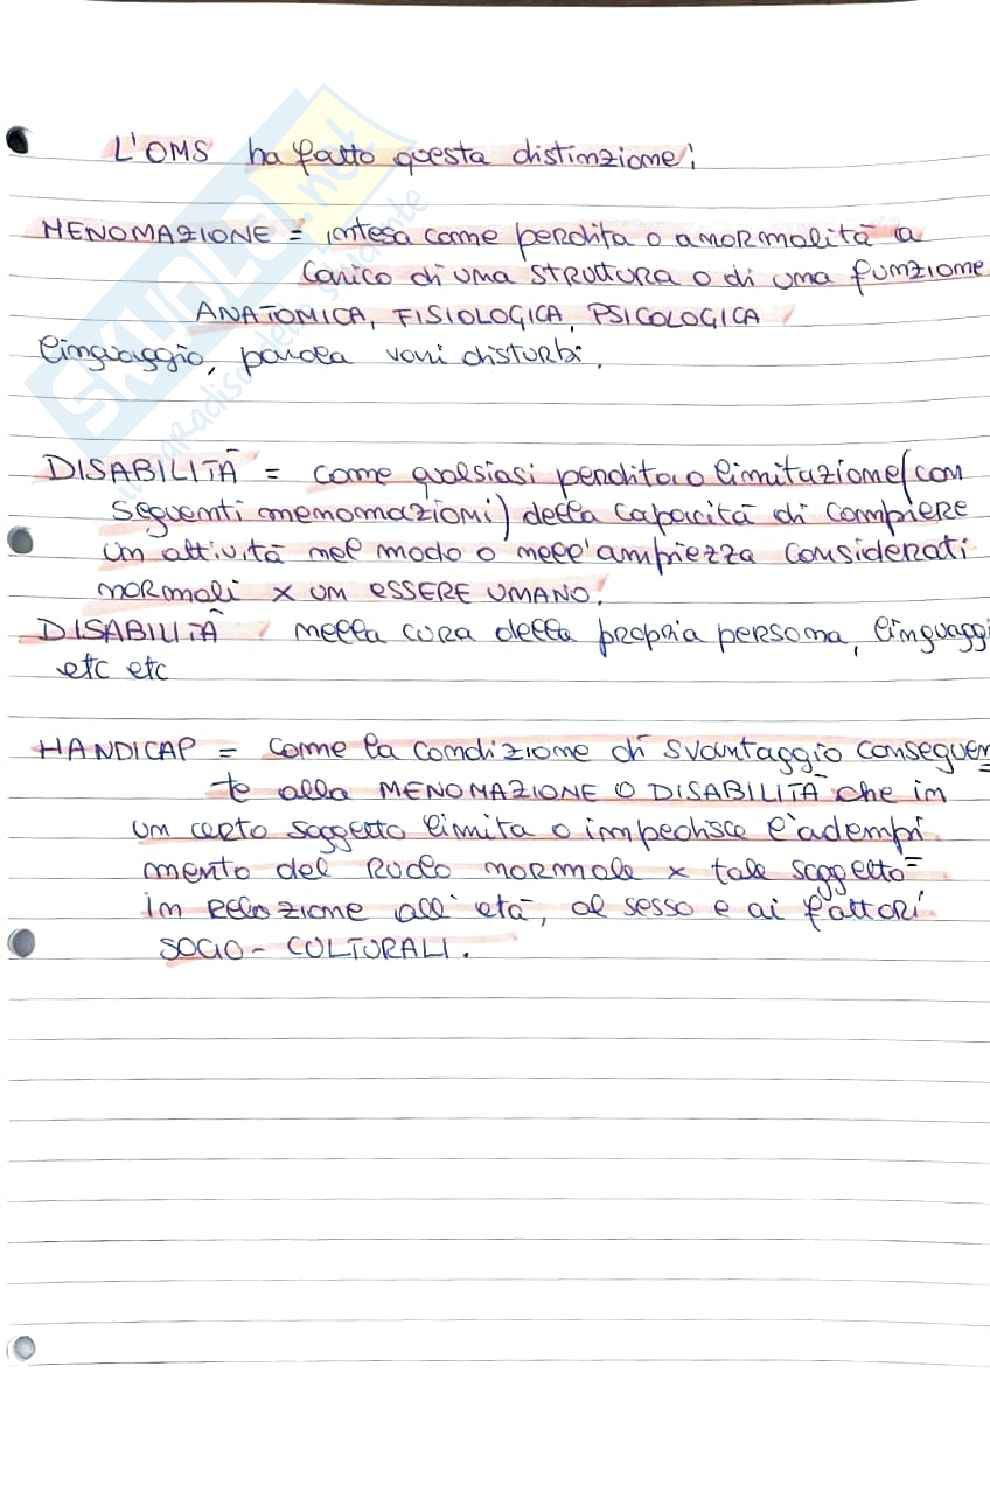 L'OMS ha fatto questa distinzione:
MENOMAZIONE = intesa come perdita o anormalità a
carico di una STRUTTURA o di una funzione
ANATOMICA, FISIOLOGICA, PSICOLOGICA
linguaggio, parola vari disturbi.
DISABILITÀ = come qualsiasi perdita o limitazione (con
seguenti menomazioni) della capacità di compiere
un attività nel modo o nell'ampiezza considerati
normali x un ESSERE UMANO.
DISABILITÀ nella cura della propria persona, linguaggi
etc etc
HANDICAP = come la condizione di svantaggio conseguen
te alla MENOMAZIONE O DISABILITÀ che in
un certo soggetto limita o impedisce l'adempi
mento del RUOLO normale x tale soggetto =
in relazione all'età, al sesso e ai fattori
SOCIO-CULTURALI.
SKUOLA.net
il paradiso dello studente